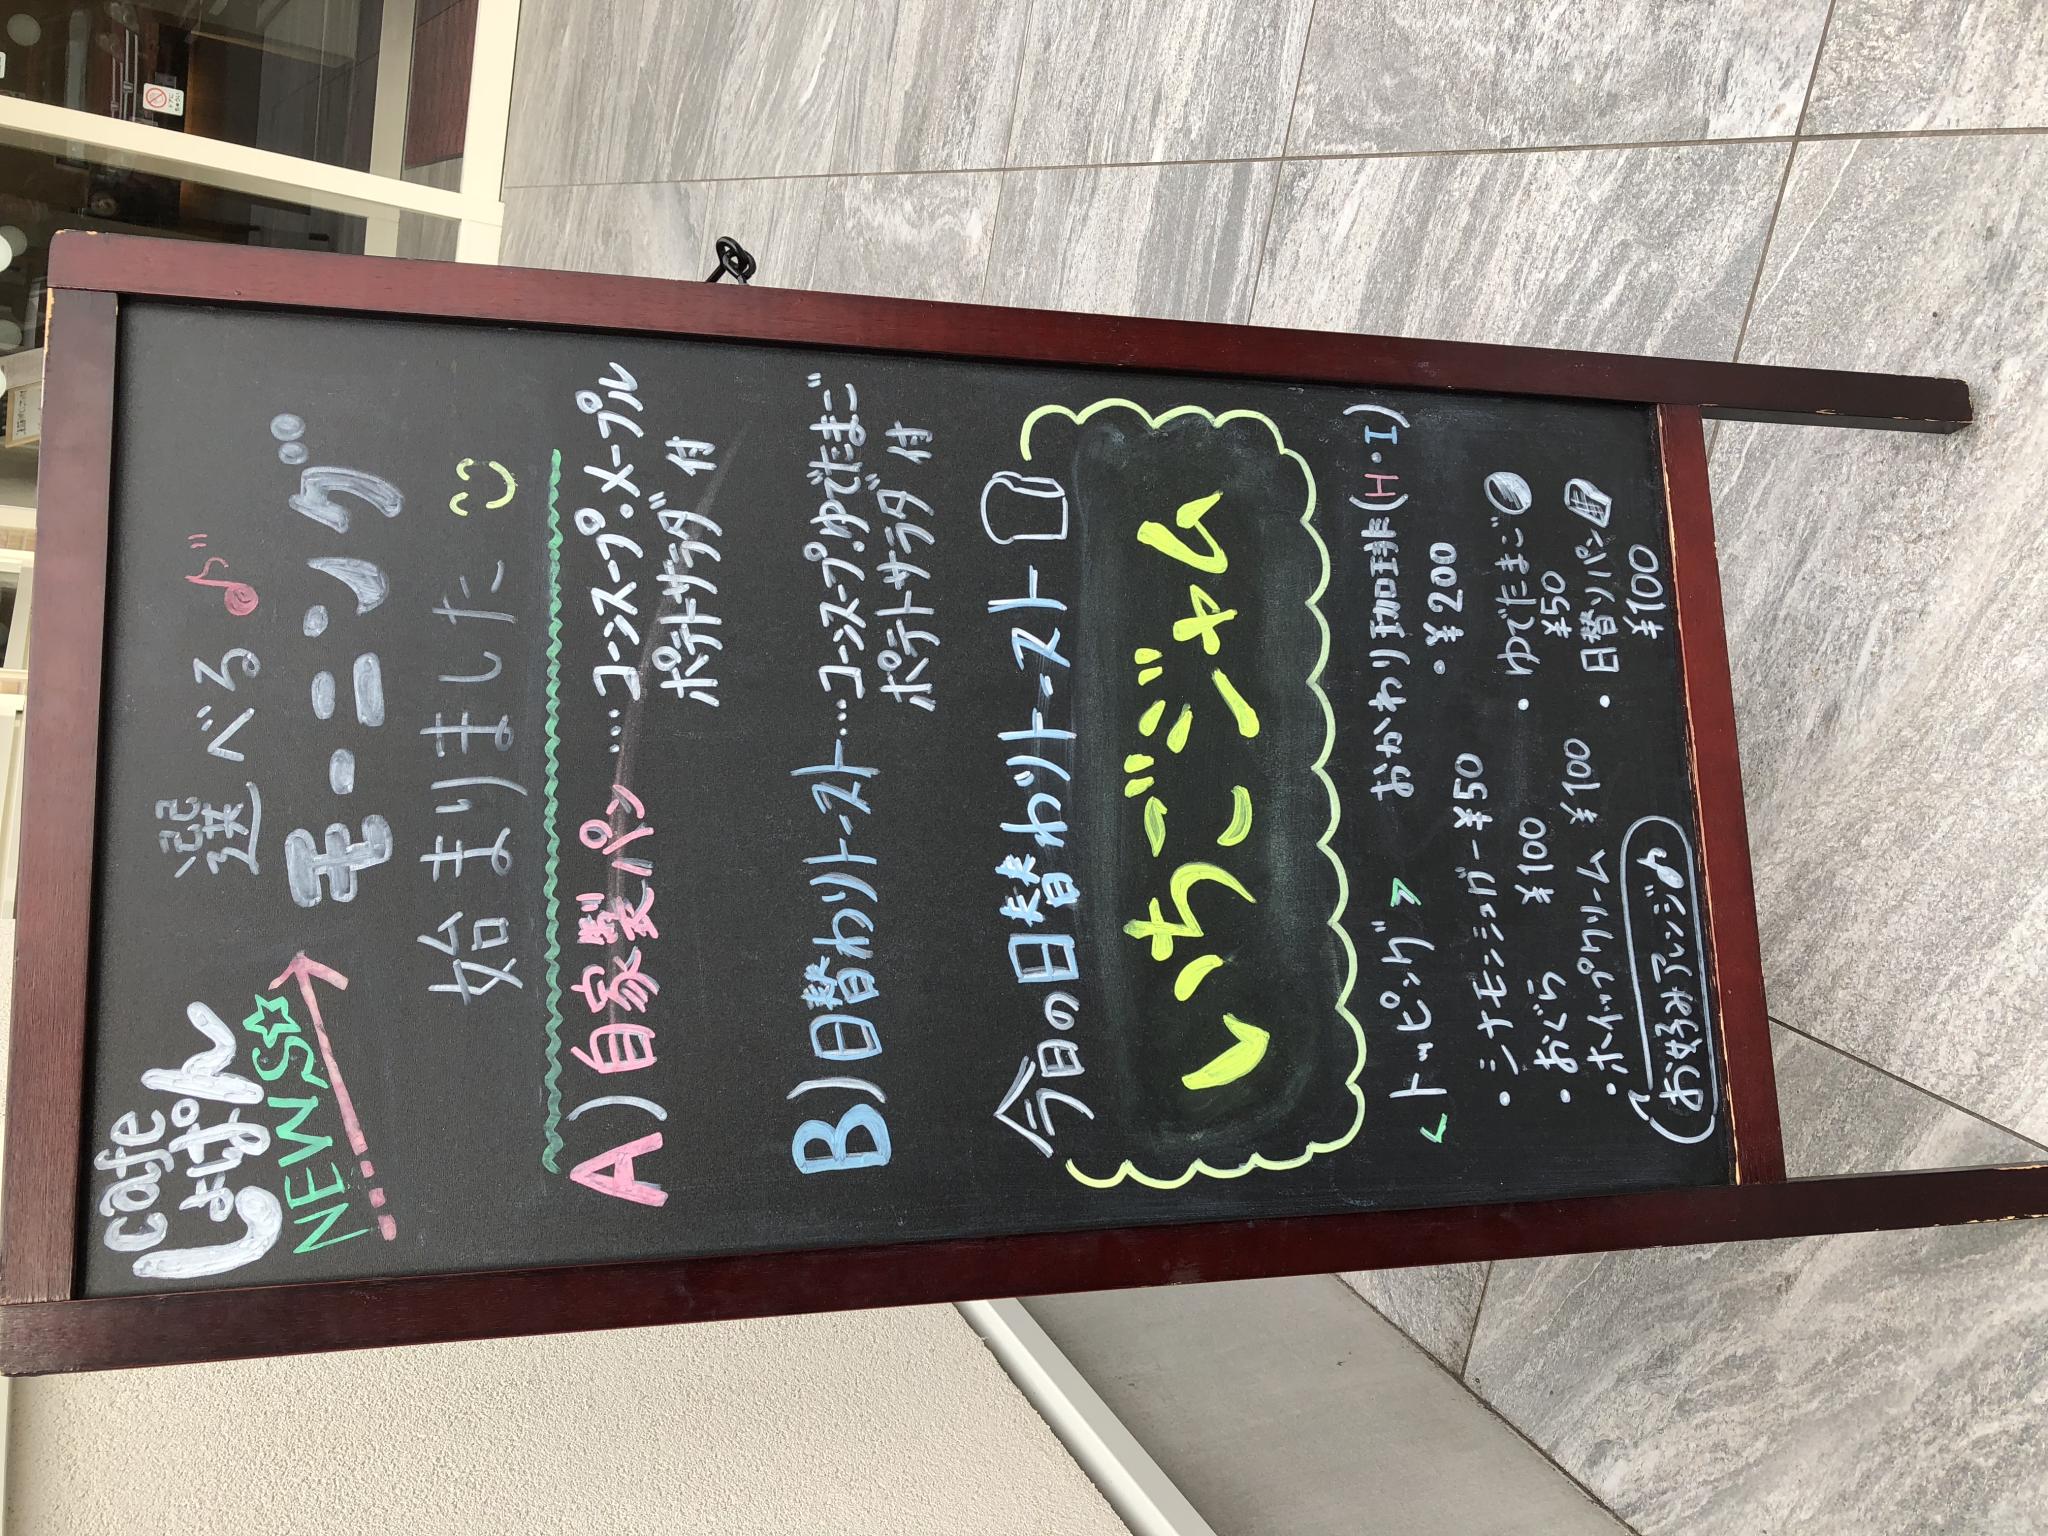 cafe
しょぽん
NEWS☆
選べる♪
モーニング
始まりました
A)自家製パン…コーンスープ・メープル
ポテトサラダ付
B)日替わりトースト…コーンスープ・ゆでたまご
ポテトサラダ付
今日の日替わりトースト
いちごジャム
<トッピング>
・シナモンシュガー ¥50
・おぐら ¥100
・ホイップクリーム ¥100
お好みアレンジ♪
おかわり珈琲(H・I)
・¥200
・ゆでたまご
¥50
・日替ソパン
¥100